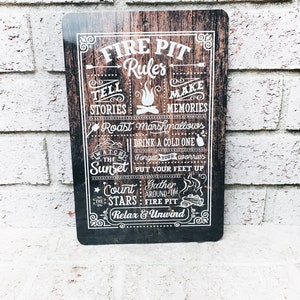 FIRE PIT
Rules
TELL STORIES
MAKE MEMORIES
Roast Marshmallows
WATCH THE Sunset
DRINK A COLD ONE
Forget your worries
PUT YOUR FEET UP
Count THE STARS
Gather AROUND THE FIRE PIT
Relax & Unwind